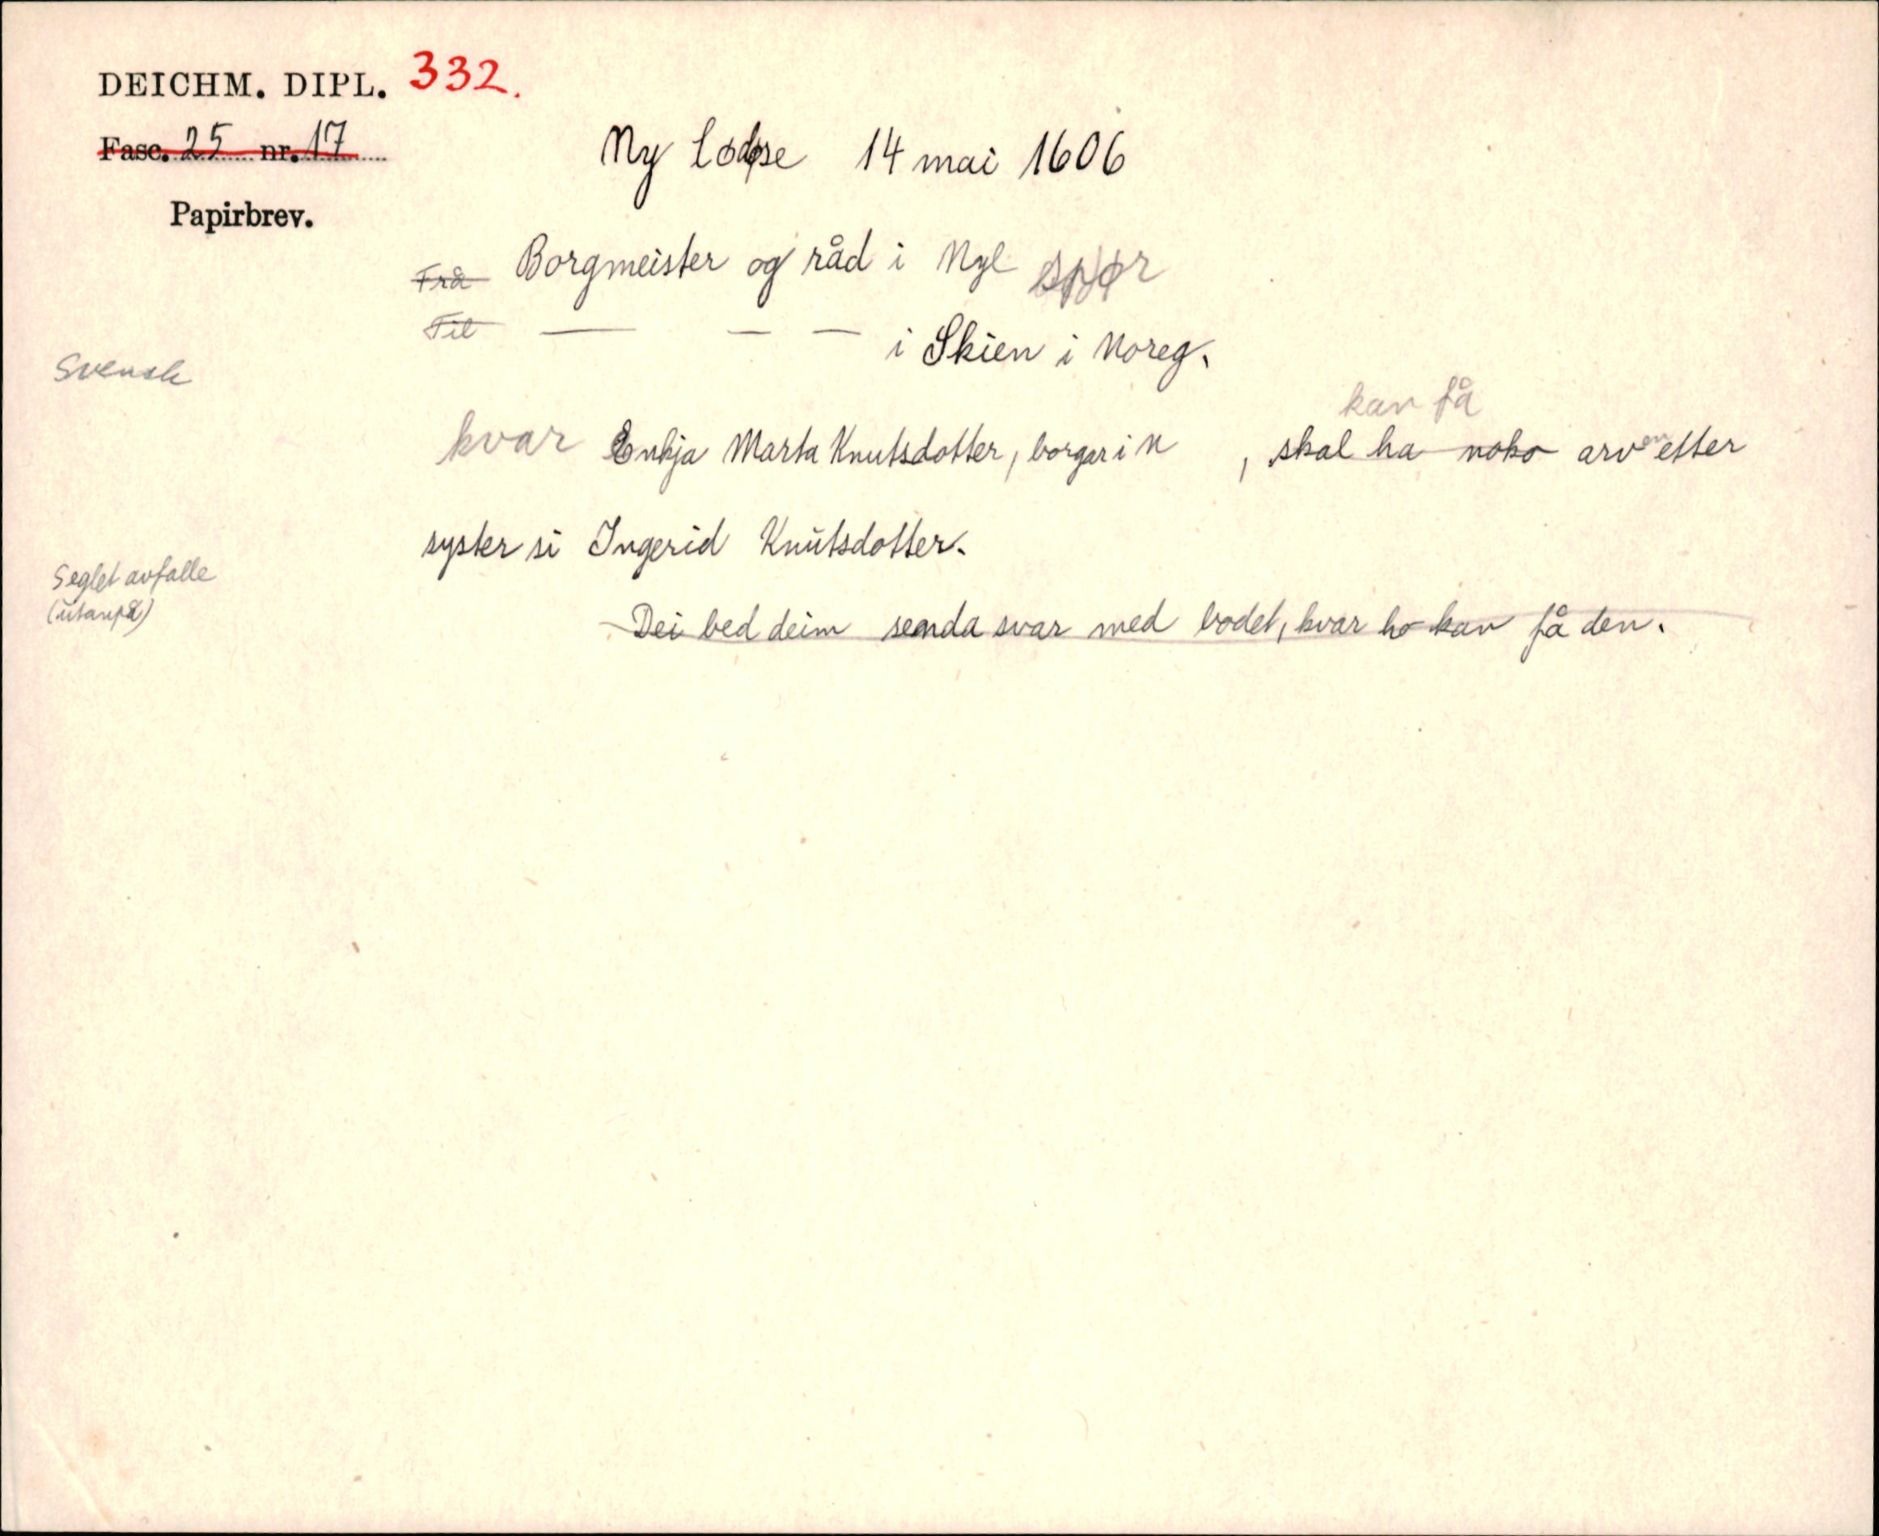 DEICHM. DIPL. 332.
Fasc. 25 nr. 17
Papirbrev.
Ny Lødøse 14 mai 1606
Frå Borgmeister og råd i Nyl spør
Til — — — i Skien i Noreg.
Svensk
kan få
kvar Enkja Marta Knutsdotter, borgar i N , skal ha noko arven etter
syster si Ingerid Knutsdotter.
Seglet avfalle
(utanpå)
Dei bed deim senda svar med bodet, kvar ho kan få den.